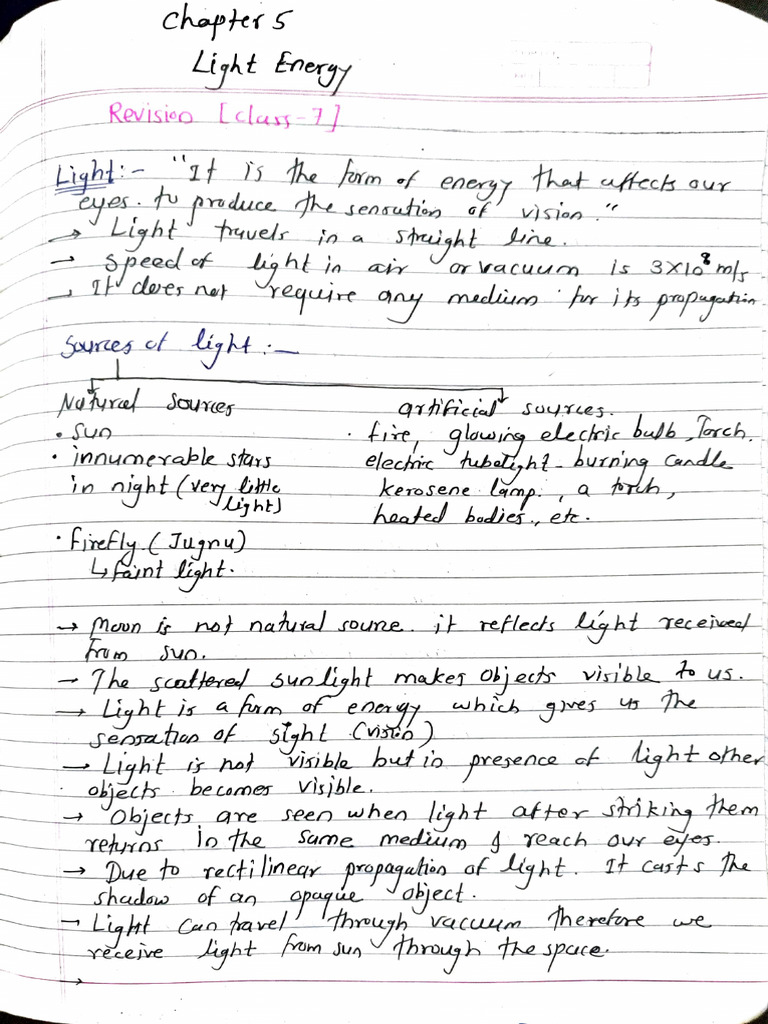 Chapter 5
Light Energy
Revision [class-7]
Light:- "It is the form of energy that affects our
eyes. to produce the sensation of vision."
→ Light travels in a straight line.
→ speed of light in air or vacuum is 3×10⁸ m/s
→ It does not require any medium for its propagation
Sources of light :-
Natural sources
artificial sources.
• sun
• fire, glowing electric bulb, Torch.
• innumerable stars
electric tubelight - burning candle
in night (very little
kerosene lamp. , a torch,
light)
heated bodies., etc.
• firefly. (Jugnu)
↳ faint light.
→ Moon is not natural source. it reflects light received
from sun.
→ The scattered sunlight makes objects visible to us.
→ Light is a form of energy which gives us the
sensation of sight (vision)
→ Light is not visible but in presence of light other
objects becomes visible.
→ Objects are seen when light after striking them
returns in the same medium & reach our eyes.
→ Due to rectilinear propagation of light. It casts the
shadow of an opaque object.
→ Light can travel through vacuum therefore we
receive light from sun through the space.
→